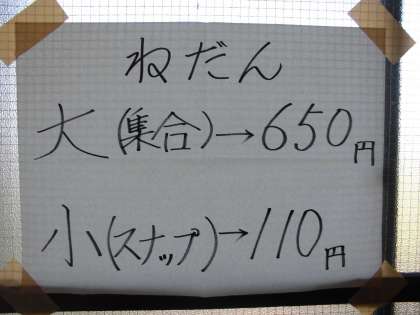 ねだん
大(集合)→650円
小(スナップ)→110円